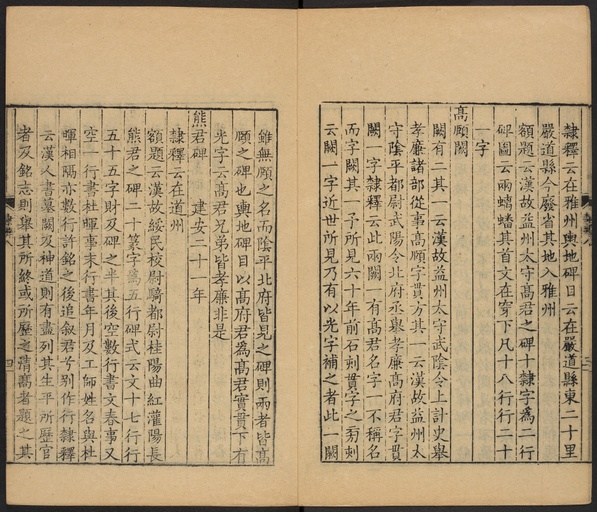 隸釋云在雅州輿地碑目云在嚴道縣東二十里
嚴道縣今廢省其地入雅州
額題云漢故益州太守高君之碑十隸字為二行
碑圖云兩螭蟠其首文在穿下凡十八行行二十
一字
高頤闕
闕有二其一云漢故益州太守武陰令上計史舉
孝廉諸部從事高頤字貫方其一云漢故益州太
守陰平都尉武陽令北府丞舉孝廉高府君字貫
闕一字隸釋云此兩闕一有高君名字一不稱名
而字闕其一予所見六十年前石刻貫字之旁刻
云闕一字近世所見乃有以光字補之者此一闕
雖無頤之名而陰平北府皆見之碑則兩者皆高
頤之碑也輿地碑目以高府君為高君實貫下有
光字云高君兄弟皆孝廉非是
熊君碑 建安二十一年
隸釋云在道州
額題云漢故綏民校尉騎都尉桂陽曲紅灌陽長
熊君之碑二十篆字為五行碑式云文十七行行
五十五字財及碑之半其後空數行書文春事又
空一行書杜暉事末行書年月及工師姓名與杜
暉相隔亦數行許銘之後追叙君兮别作行隸釋
云漢人書墓闕及神道則有盡列其生平所歷官
者及銘志則舉其所終或所歷之清高者題之其